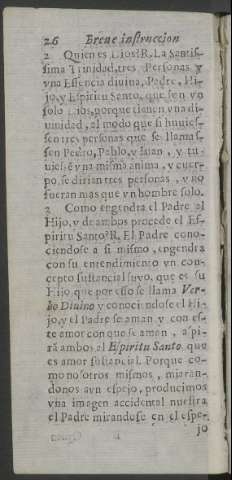 26 Breue instruccion
2 Quien es Dios? R. La Santis-
sima Trinidad, tres Personas y
vna Essencia diuina, Padre, Hi-
jo, y Espiritu Santo, que son vn
solo Dios, porque tienen vna di-
uinidad, al modo que si huuies-
sen tres personas que se llamas-
sen Pedro, Pablo, y Iuan, y tu-
uiessẽ vna misma anima, y cuer-
po, se dirian tres personas, y no
fueran mas que vn hombre solo.
2 Como engendra el Padre al
Hijo, y de ambos procede el Es-
piritu Santo? R. El Padre cono-
ciendose a si mismo, engendra
con su entendimiento vn con-
cepto sustancial suyo, que es su
Hijo que por esso se llama Ver-
bo Diuino y conociendose el Hi-
jo, y el Padre se aman y con es-
te amor con que se aman, aspi-
rã ambos al Espiritu Santo que
es amor sustancial. Porque co-
mo nosotros mismos, miran-
donos a vn espejo, producimos
vna imagen accidental nuestra
el Padre mirandose en el espe-
jo